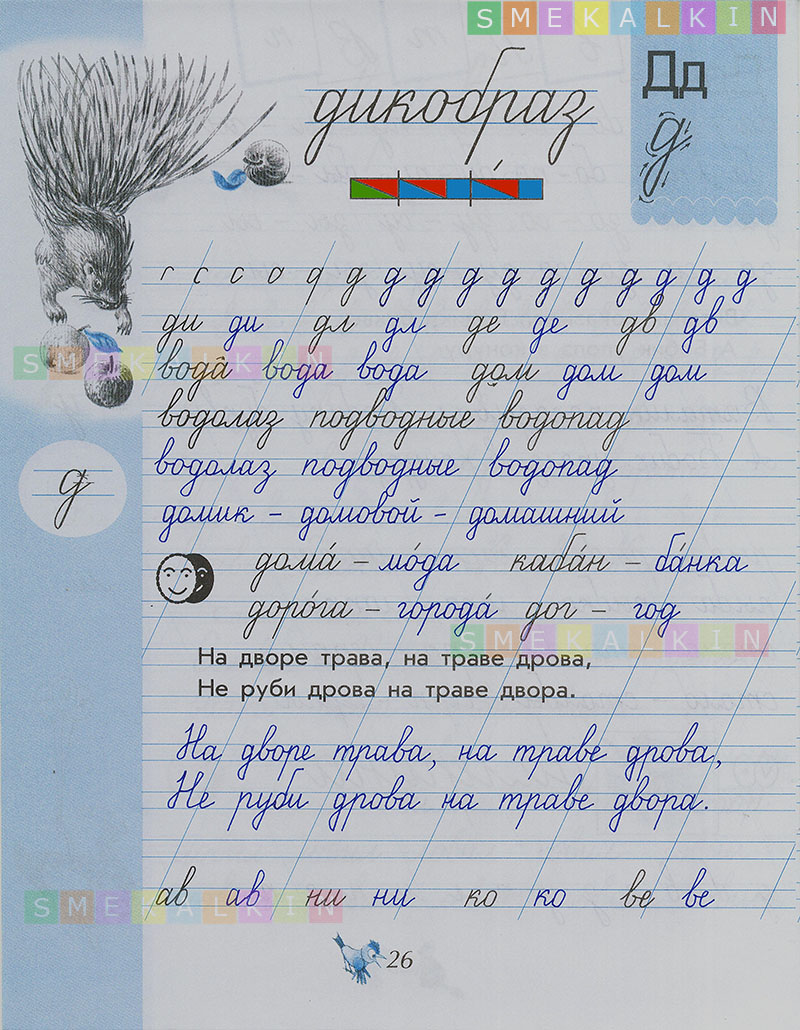 SMEKALKIN
Дд
д
дикобраз
г с с о д д д д д д д д д д д д
ди ди дл дл де де дв дв
SMEKALKIN
вода вода вода дом дом дом
водолаз подводные водопад
д
водолаз подводные водопад
домик – домовой – домашний
дома́ – мо́да каба́н – ба́нка
доро́га – города́ дог – год
SMEKALKIN
На дворе трава, на траве дрова,
Не руби дрова на траве двора.
На дворе трава, на траве дрова,
Не руби дрова на траве двора.
SMEKALKIN
ав ав ни ни ко ко ве ве
26